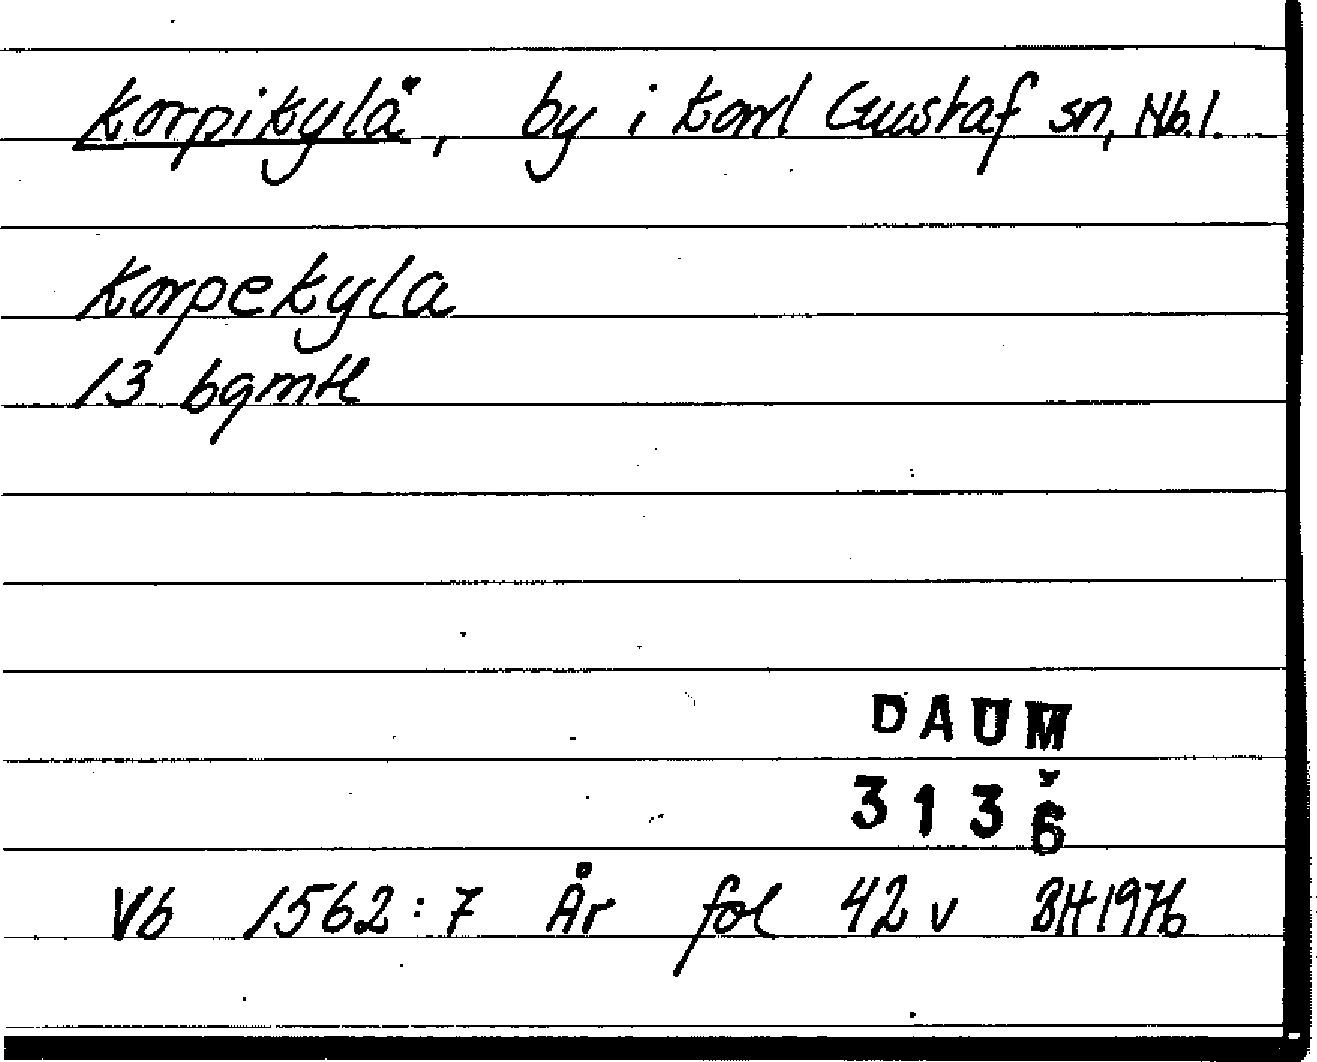 Korpikylä, by i Karl Gustaf sn, Nb.l.
Korpekyla
13 bgmtl
DAUM
3136
Vb 1562:7 År fol 42 v BH 1976